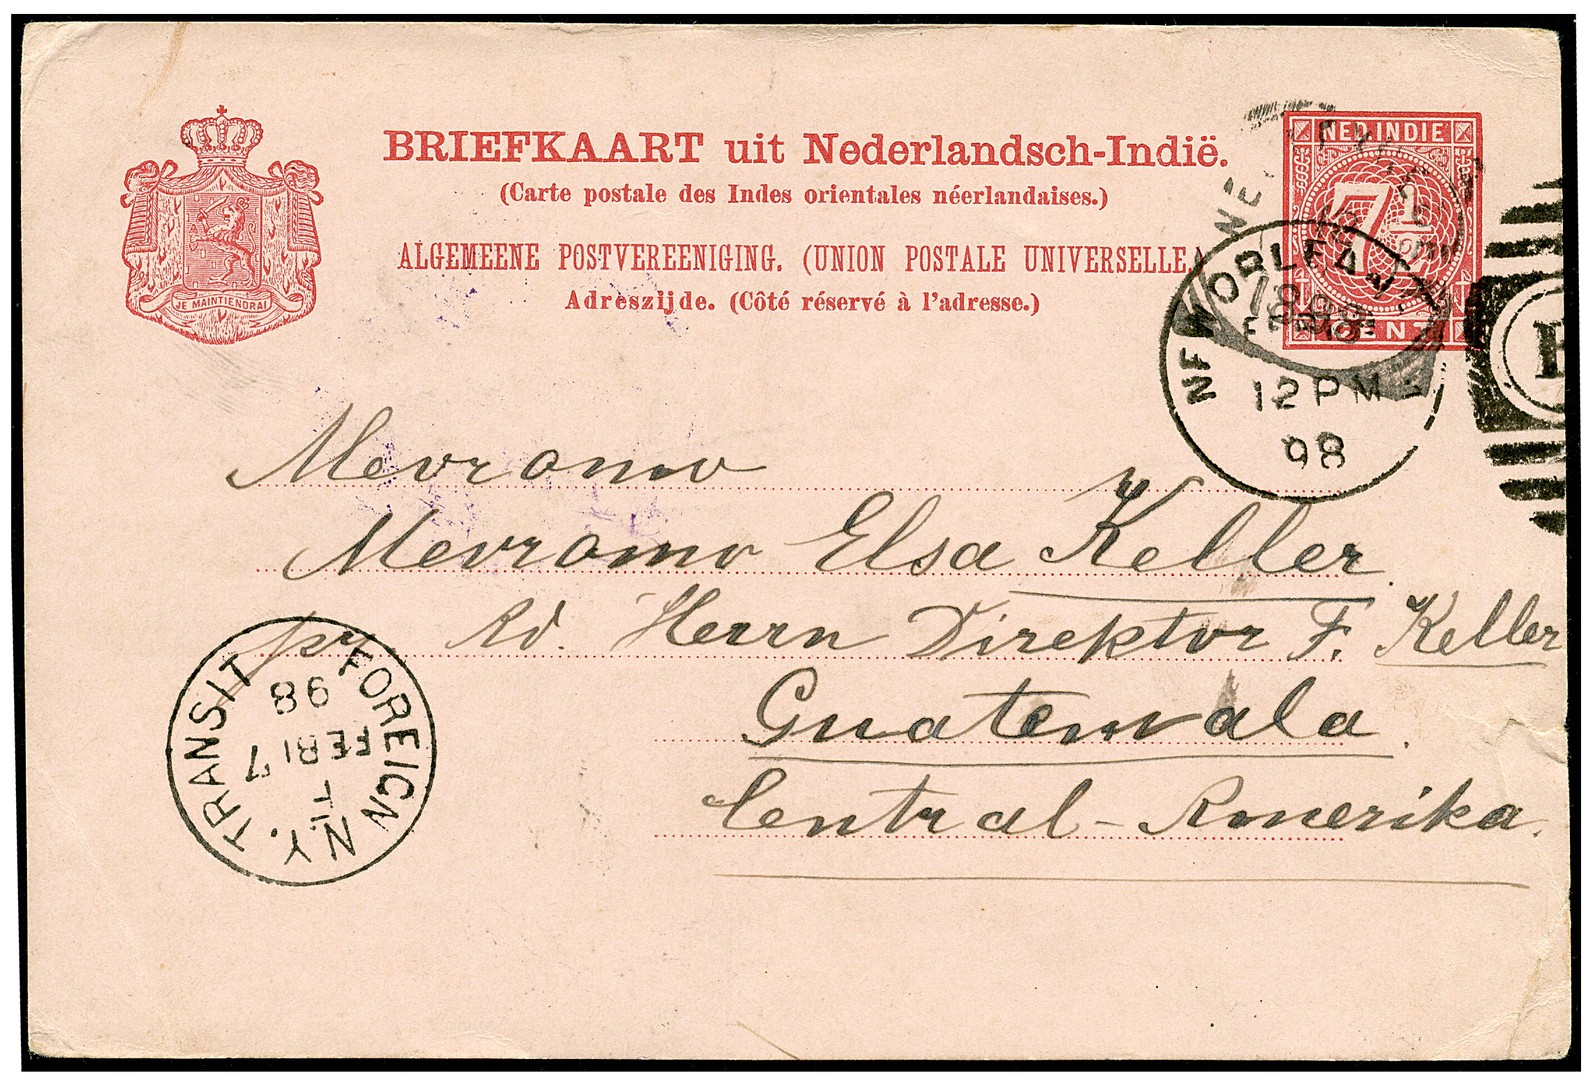 BRIEFKAART uit Nederlandsch-Indië.
(Carte postale des Indes orientales néerlandaises.)
ALGEMEENE POSTVEREENIGING. (UNION POSTALE UNIVERSELLE.)
Adreszijde. (Côté réservé à l'adresse.)
JE MAINTIENDRAI
NED. INDIE
7½
CENT
NEW ORLEANS
12 PM
98
Mevromo
Mevromo Elsa Keller
pr Ad. Herrn Direktor F. Keller
Guatemala.
Central-Amerika.
N.Y. FOREIGN TRANSIT
FEB 17
98